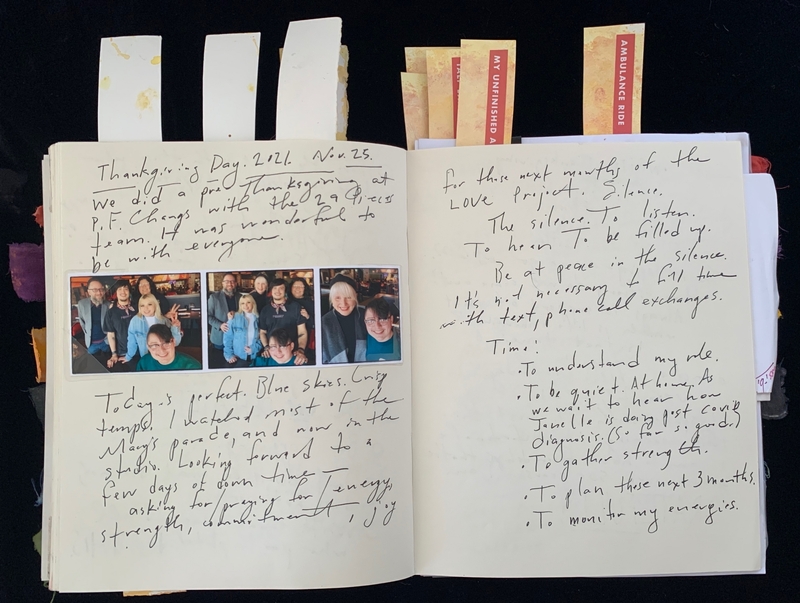 MY UNFINISHED A
AMBULANCE RIDE
Thanksgiving Day. 2021. Nov. 25.
We did a pre Thanksgiving at
P.F. Changs with the 29 Pieces
team. It was wonderful to
be with everyone.
Today-s perfect. Blue skies. Crisp
temps. I watched most of the
Macy's parade, and now in the
studio. Looking forward to a
few days of down time —
asking for/praying for/energy,
strength, commitment, joy
for those next months of the
LOVE Project. Silence.
The silence. To listen.
To hear. To be filled up.
Be at peace in the silence.
It's not necessary to fill time
with text, phone call exchanges.
Time!
• To understand my role.
• To be quiet. At home. As
we wait to hear how
Janelle is doing post covid
diagnosis. (So far so good.)
• To gather strength.
• To plan these next 3 months.
• To monitor my energies.